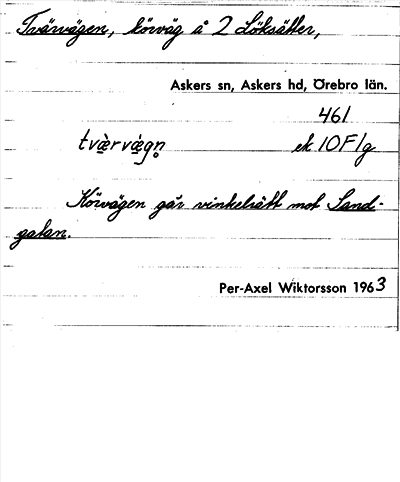 Tvärvägen, körväg å 2 Löksätter,
Askers sn, Askers hd, Örebro län.
461
tvæ̀rvæ̀gn̥ ek 10F1g
Körvägen går vinkelrätt mot Sand-
gatan.
Per-Axel Wiktorsson 1963